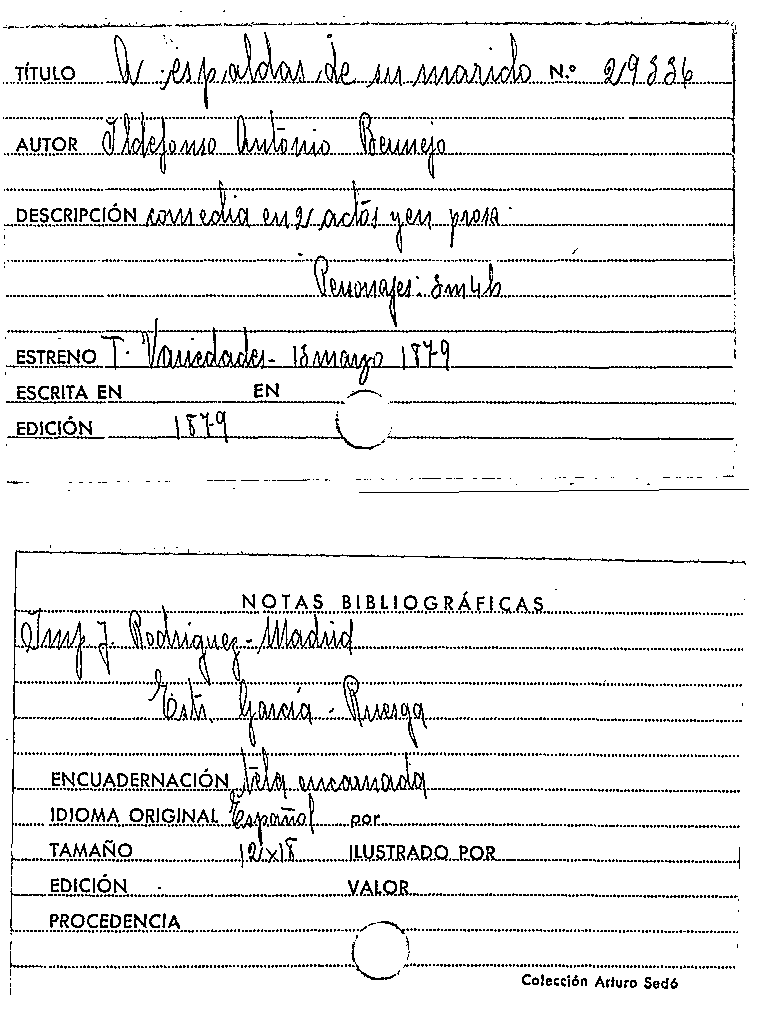 TÍTULO A espaldas de su marido N.º 29336
AUTOR Ildefonso Antonio Bermejo
DESCRIPCIÓN comedia en 2 actos y en prosa
Personajes: 3m4h
ESTRENO T. Variedades - 18 marzo 1879
ESCRITA EN EN
EDICIÓN 1879
NOTAS BIBLIOGRÁFICAS
Imp J. Rodriguez - Madrid
Estr. García - Ruesga
ENCUADERNACIÓN tela encarnada
IDIOMA ORIGINAL Español por
TAMAÑO 12x18 ILUSTRADO POR
EDICIÓN VALOR
PROCEDENCIA
Colección Arturo Sedó